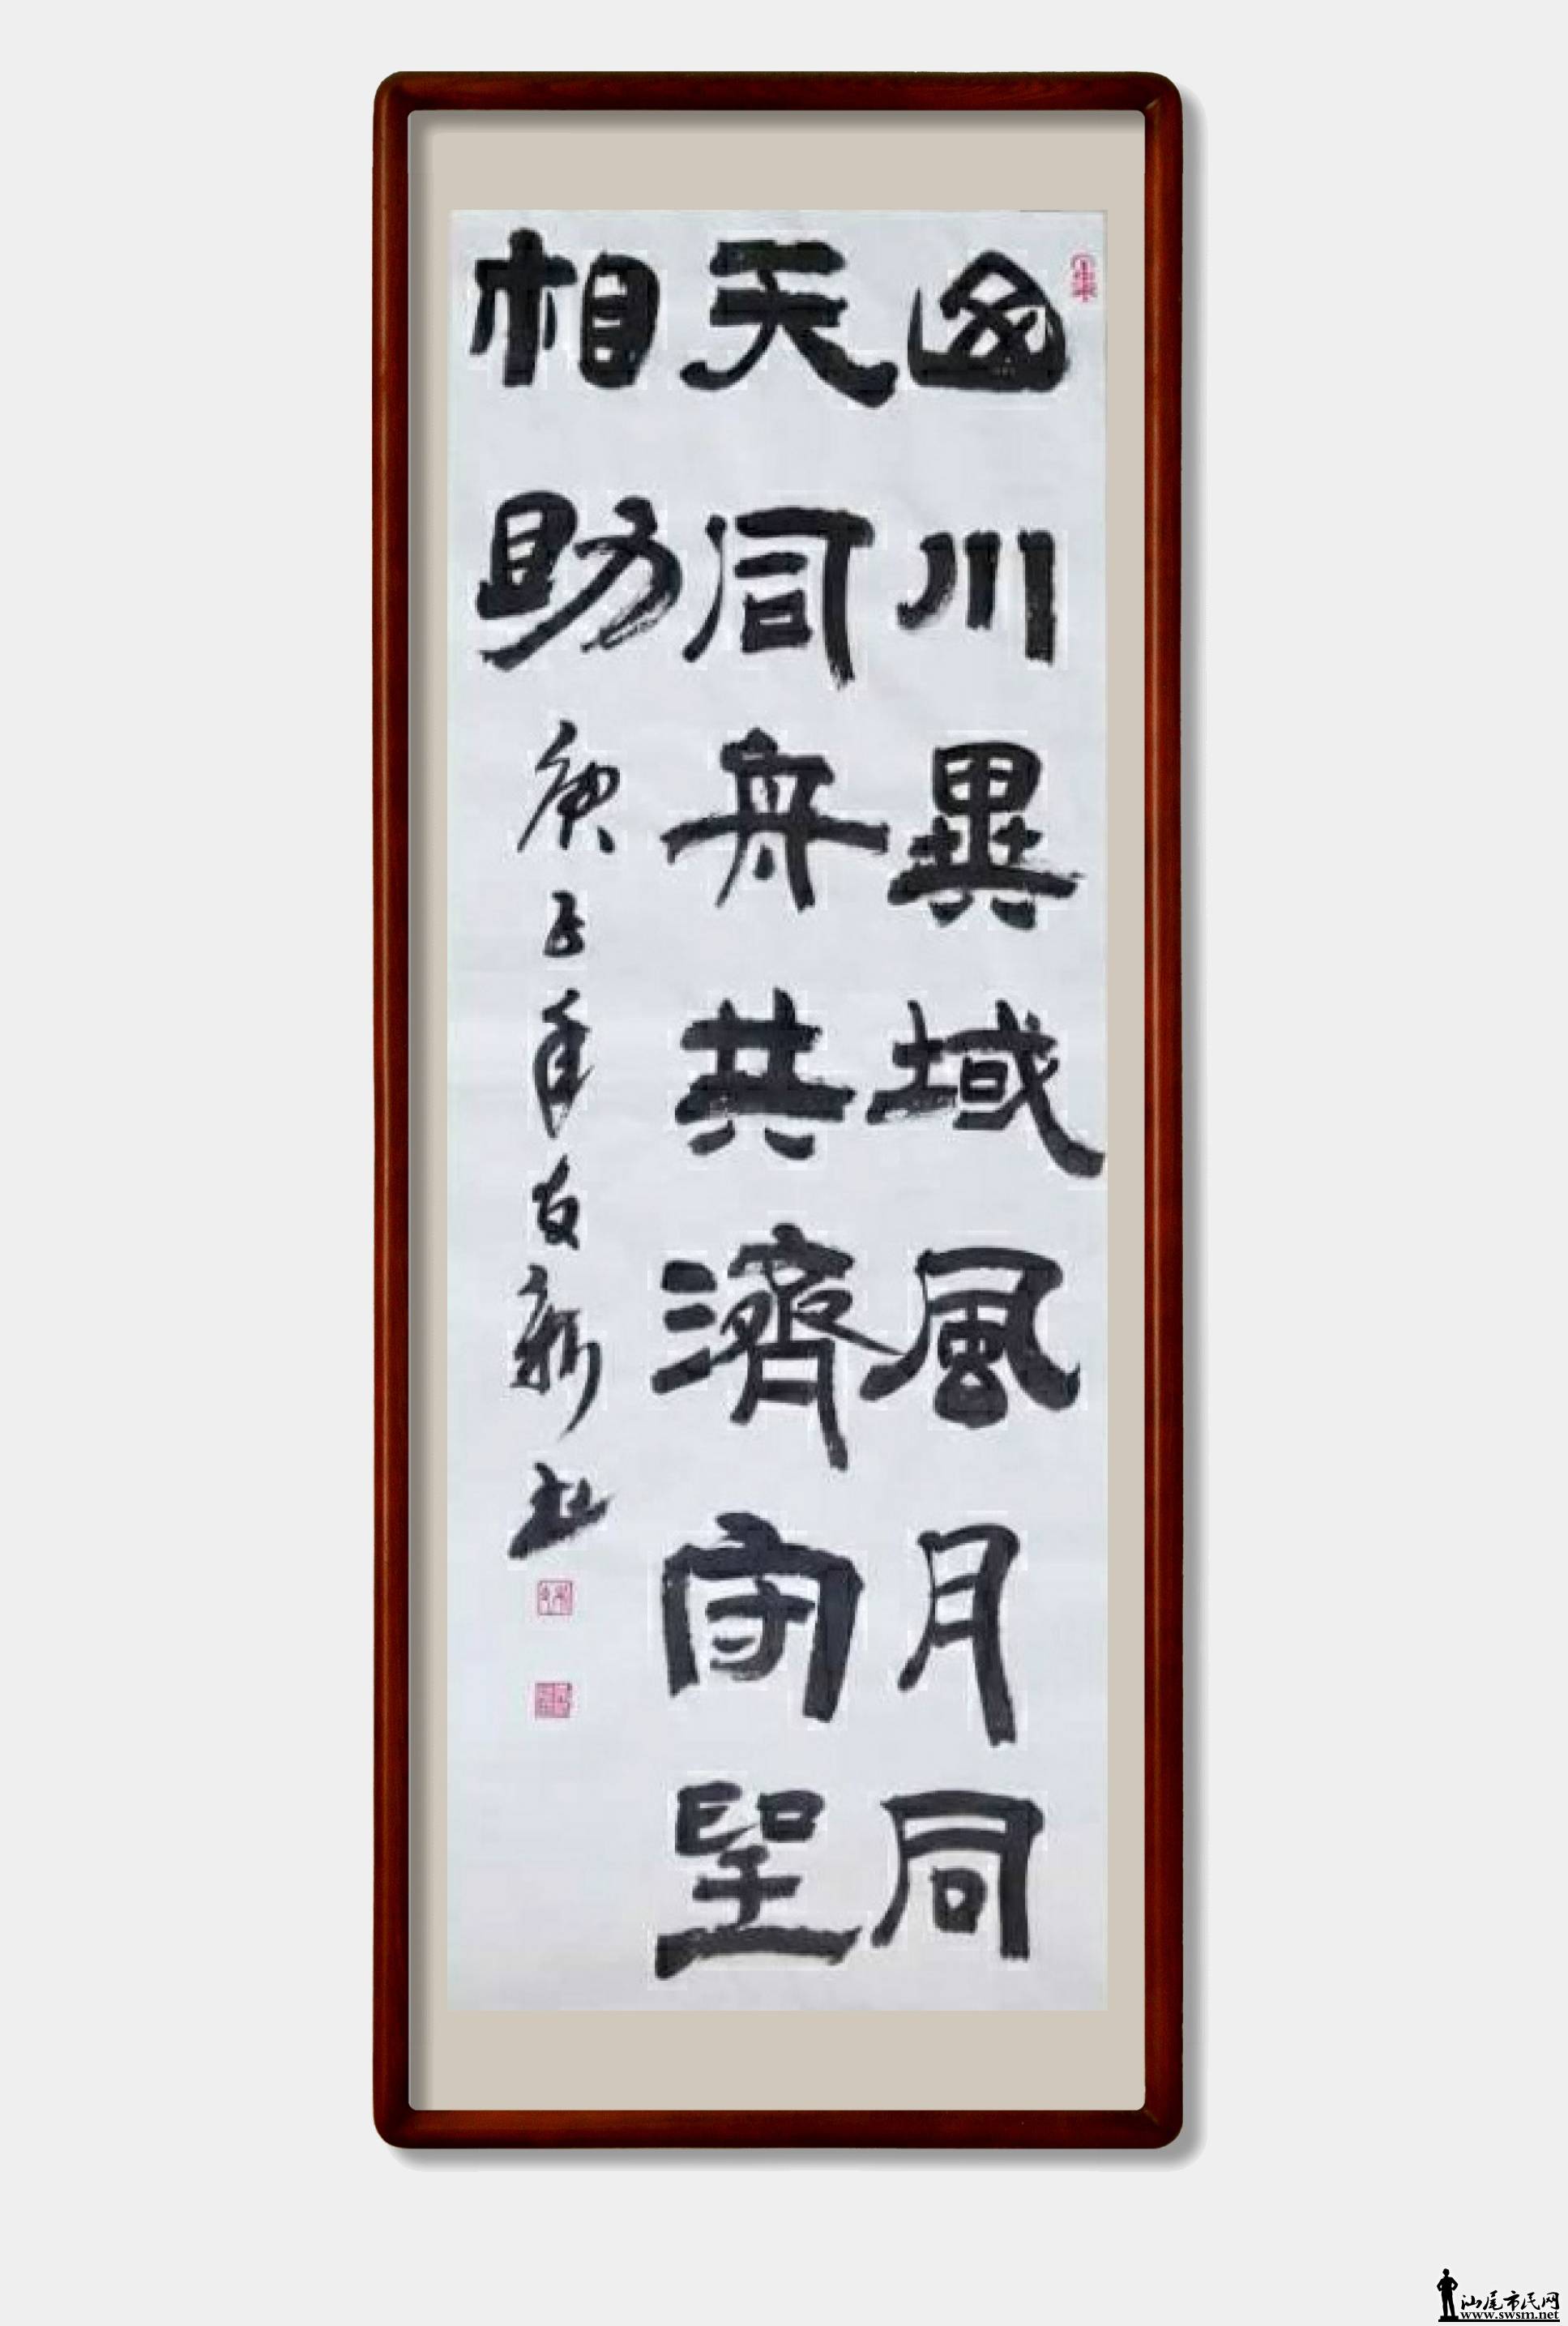 山川異域風月同
天同舟共濟守望
相助 庚子年友新书
汕尾市民网
www.swsm.net